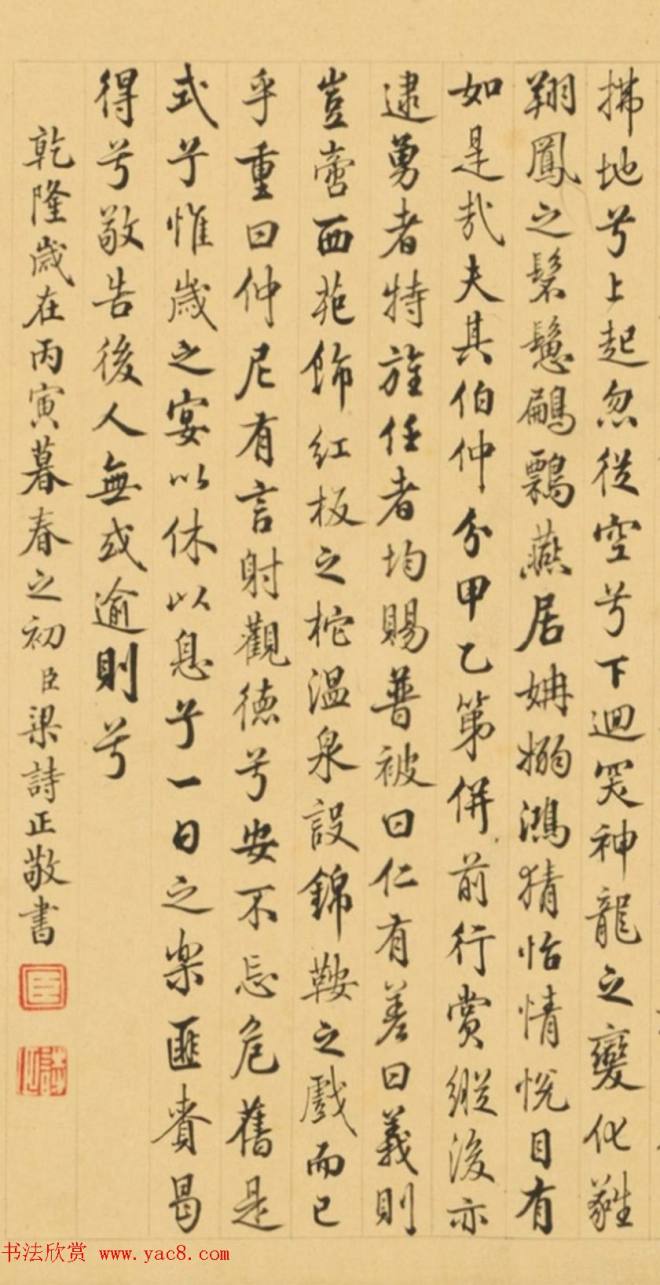 拂地兮上起忽從空兮下迴突神龍之變化
翔鳳之鬆鶣燕居姌搦鴻猜怡情悅目有
如是哉夫其伯仲分甲乙第併前行賞縱後亦
逮勇者特旌任者均賜普被曰仁有差曰義則
豈啻西苑飾紅板之柁溫泉設錦鞍之戲而已
乎重曰仲尼有言射觀德兮安不忘危舊是
式兮惟歲之宴以休以息兮一日之樂匪貴曷
得兮敬告後人無或逾則兮
乾隆歲在丙寅暮春之初臣梁詩正敬書
臣
书法欣赏 www.yac8.com